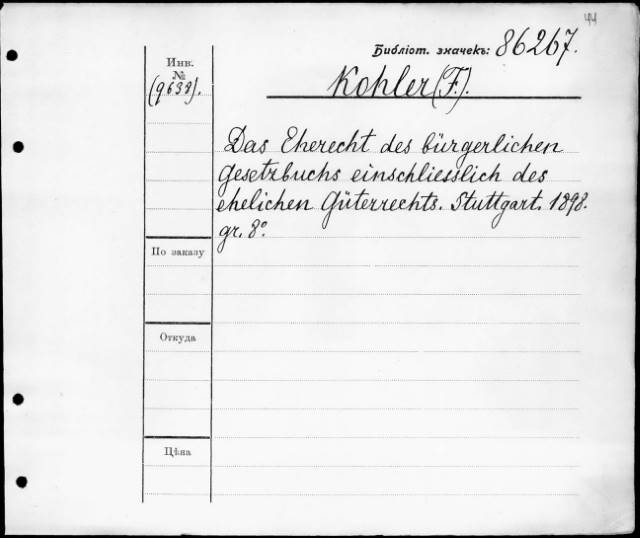 44
Библіот. значекъ: 86267.
Инв.
№
(9638).
Kohler (F.).
Das Eherecht des bürgerlichen
Gesetzbuchs einschliesslich des
ehelichen Güterrechts. Stuttgart. 1898.
gr. 8°.
По заказу
Откуда
Цѣна